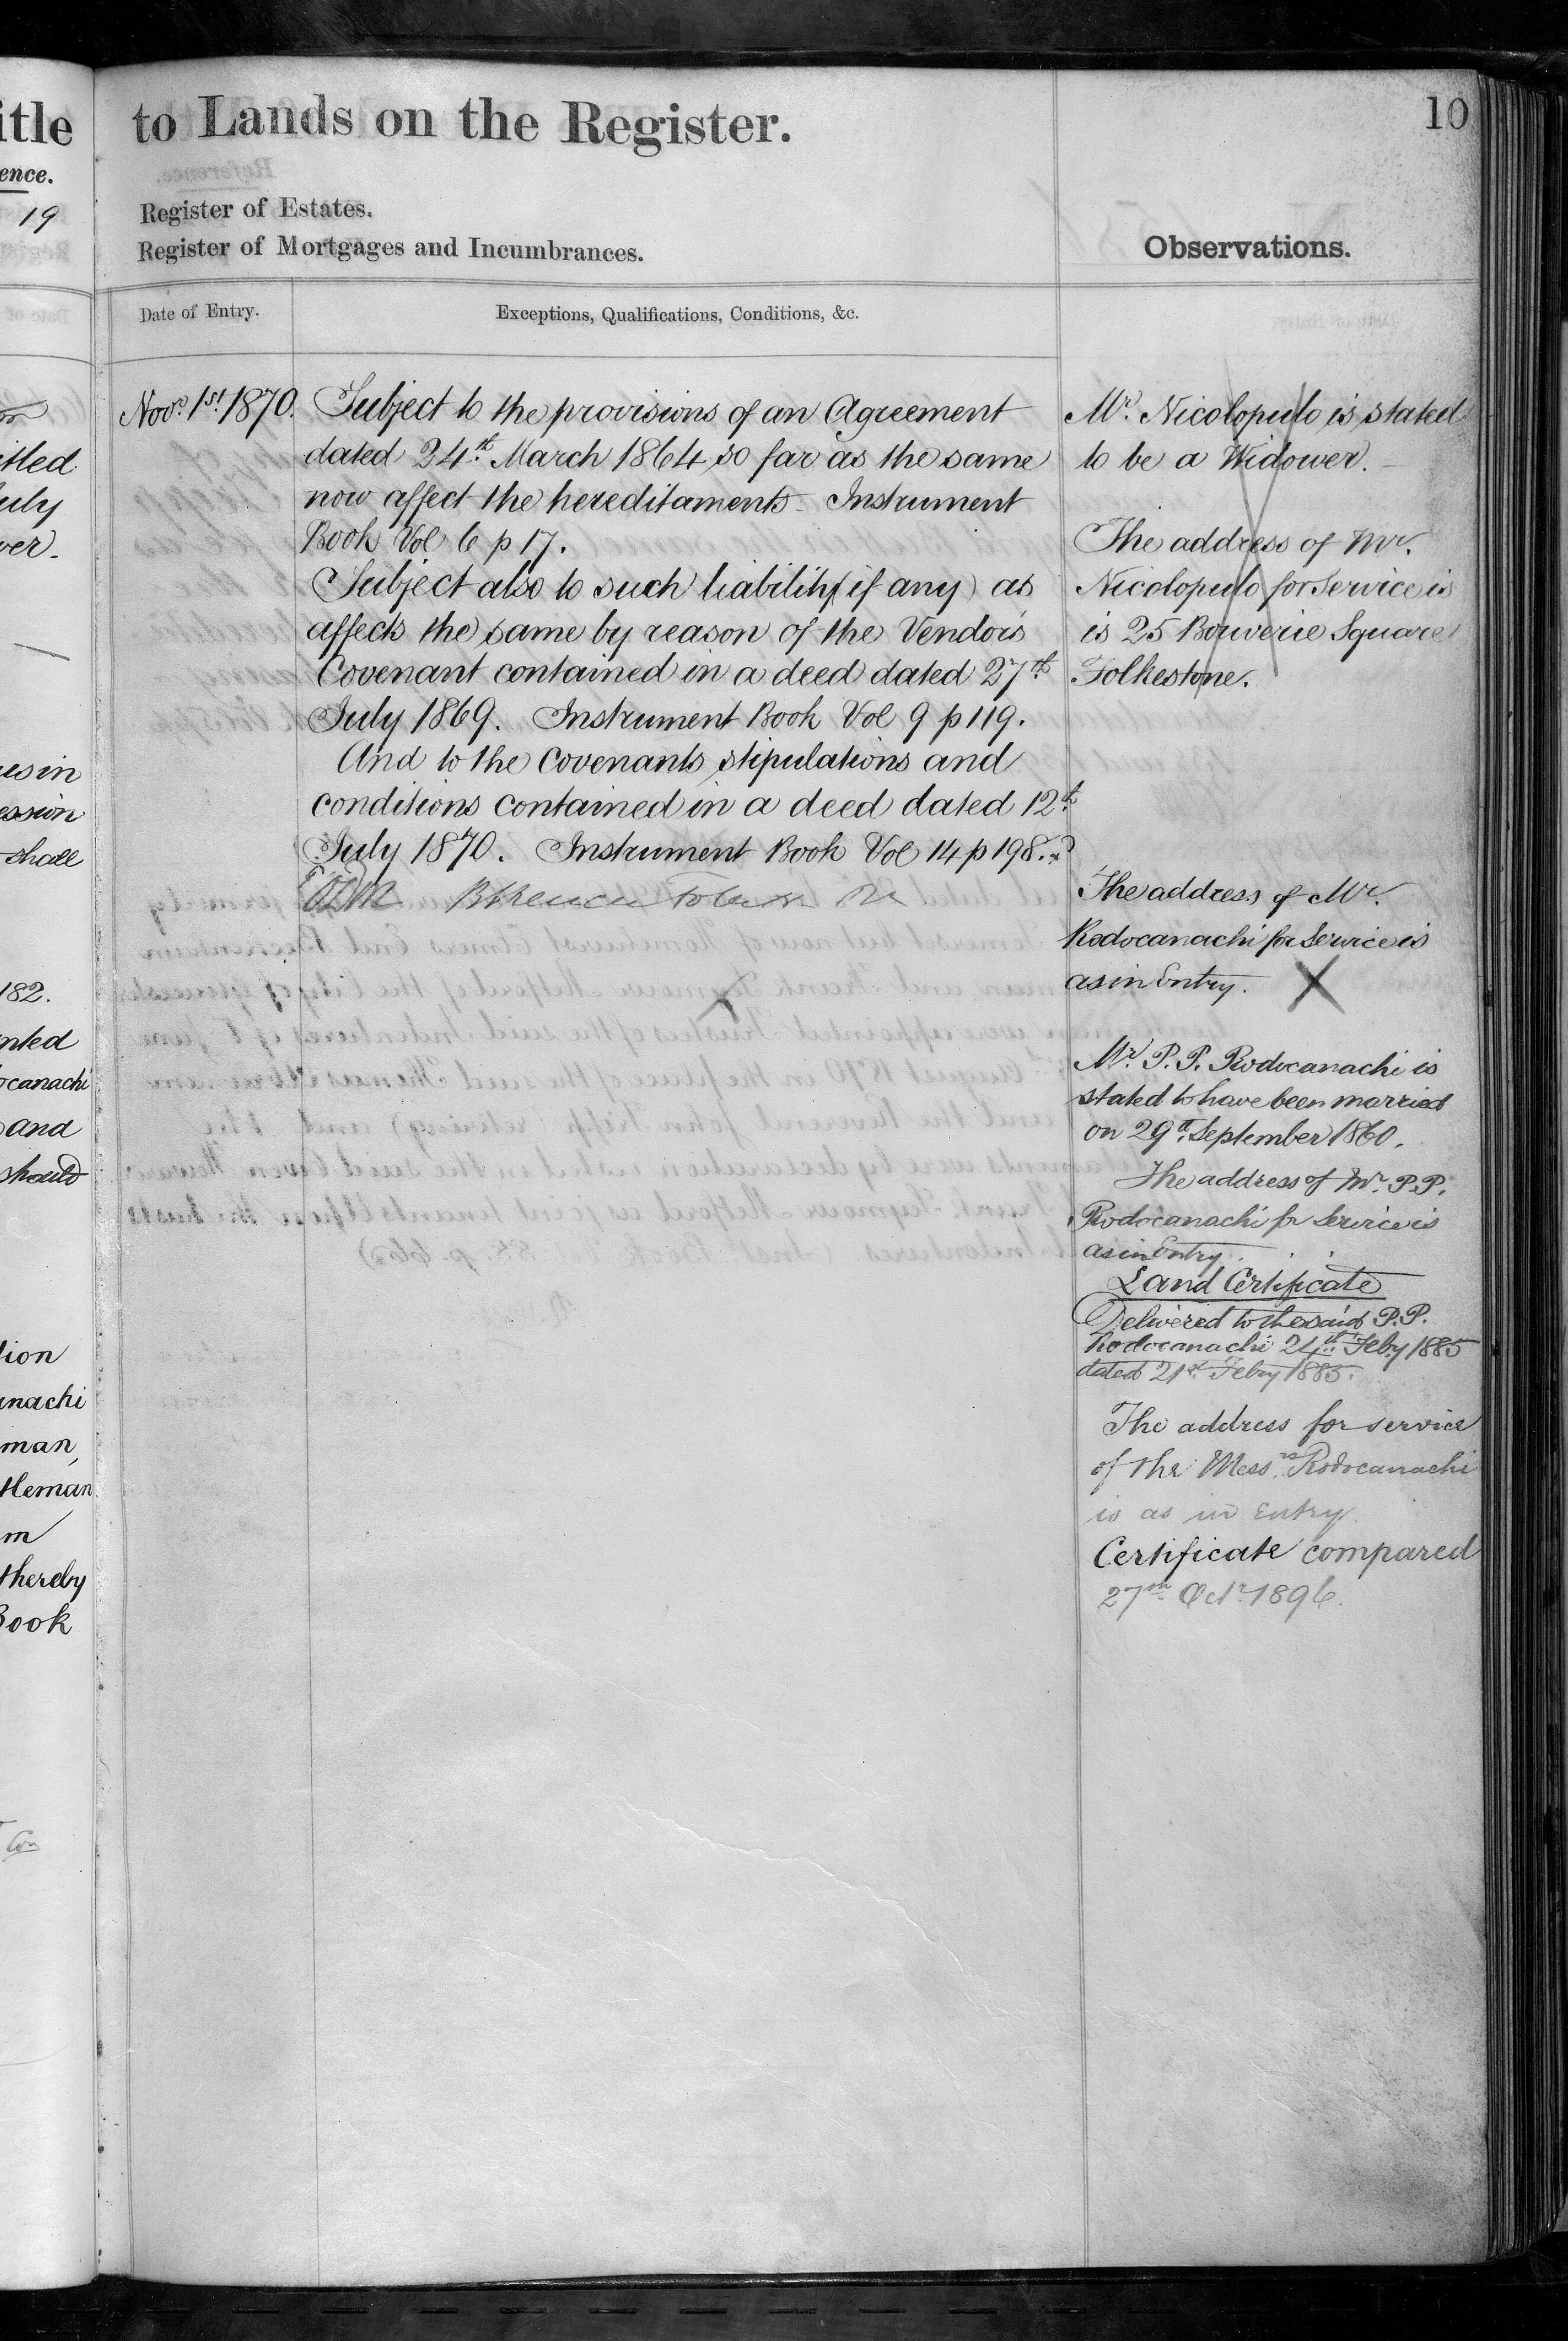 itle
ence.
19
itled
uly
ver.
es in
ession
shall
182.
nted
ocanachi
and
should
tion
anachi
man,
tleman
m
thereby
Book
to Lands on the Register.
10
Register of Estates.
Register of Mortgages and Incumbrances.
Observations.
Date of Entry.
Exceptions, Qualifications, Conditions, &c.
Novr. 1st. 1870.
Subject to the provisions of an Agreement
dated 24th March 1864 so far as the same
now affect the hereditaments - Instrument
Book Vol 6 p 17.
Subject also to such liability (if any) as
affects the same by reason of the Vendors
Covenant contained in a deed dated 27th
July 1869. Instrument Book Vol 9 p 119.
And to the Covenants stipulations and
conditions contained in a deed dated 12th
July 1870. Instrument Book Vol 14 p 198.
Mr. Nicolopulo is stated
to be a Widower. -
The address of Mr.
Nicolopulo for Service is
is 25 Bouverie Square
Folkestone.
The address of Mr.
Rodocanachi for Service is
as in Entry. X
Mr. P. P. Rodocanachi is
stated to have been married
on 29th September 1860.
The address of Mr. P.P.
Rodocanachi for Service is
as in Entry.
Land Certificate
Delivered to the said P.P.
Rodocanachi 24th Feby 1885
dated 21st Febry 1885.
The address for service
of the Messrs Rodocanachi
is as in Entry.
Certificate compared
27th Octr 1896.